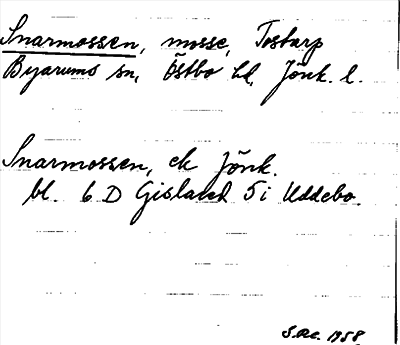 Snarmossen, mosse, Tostarp
Byarums sn, Östbo hd, Jönk. l.
Snarmossen, ek Jönk.
bl. 6 D Gislaved 5 i Uddebo.
1958